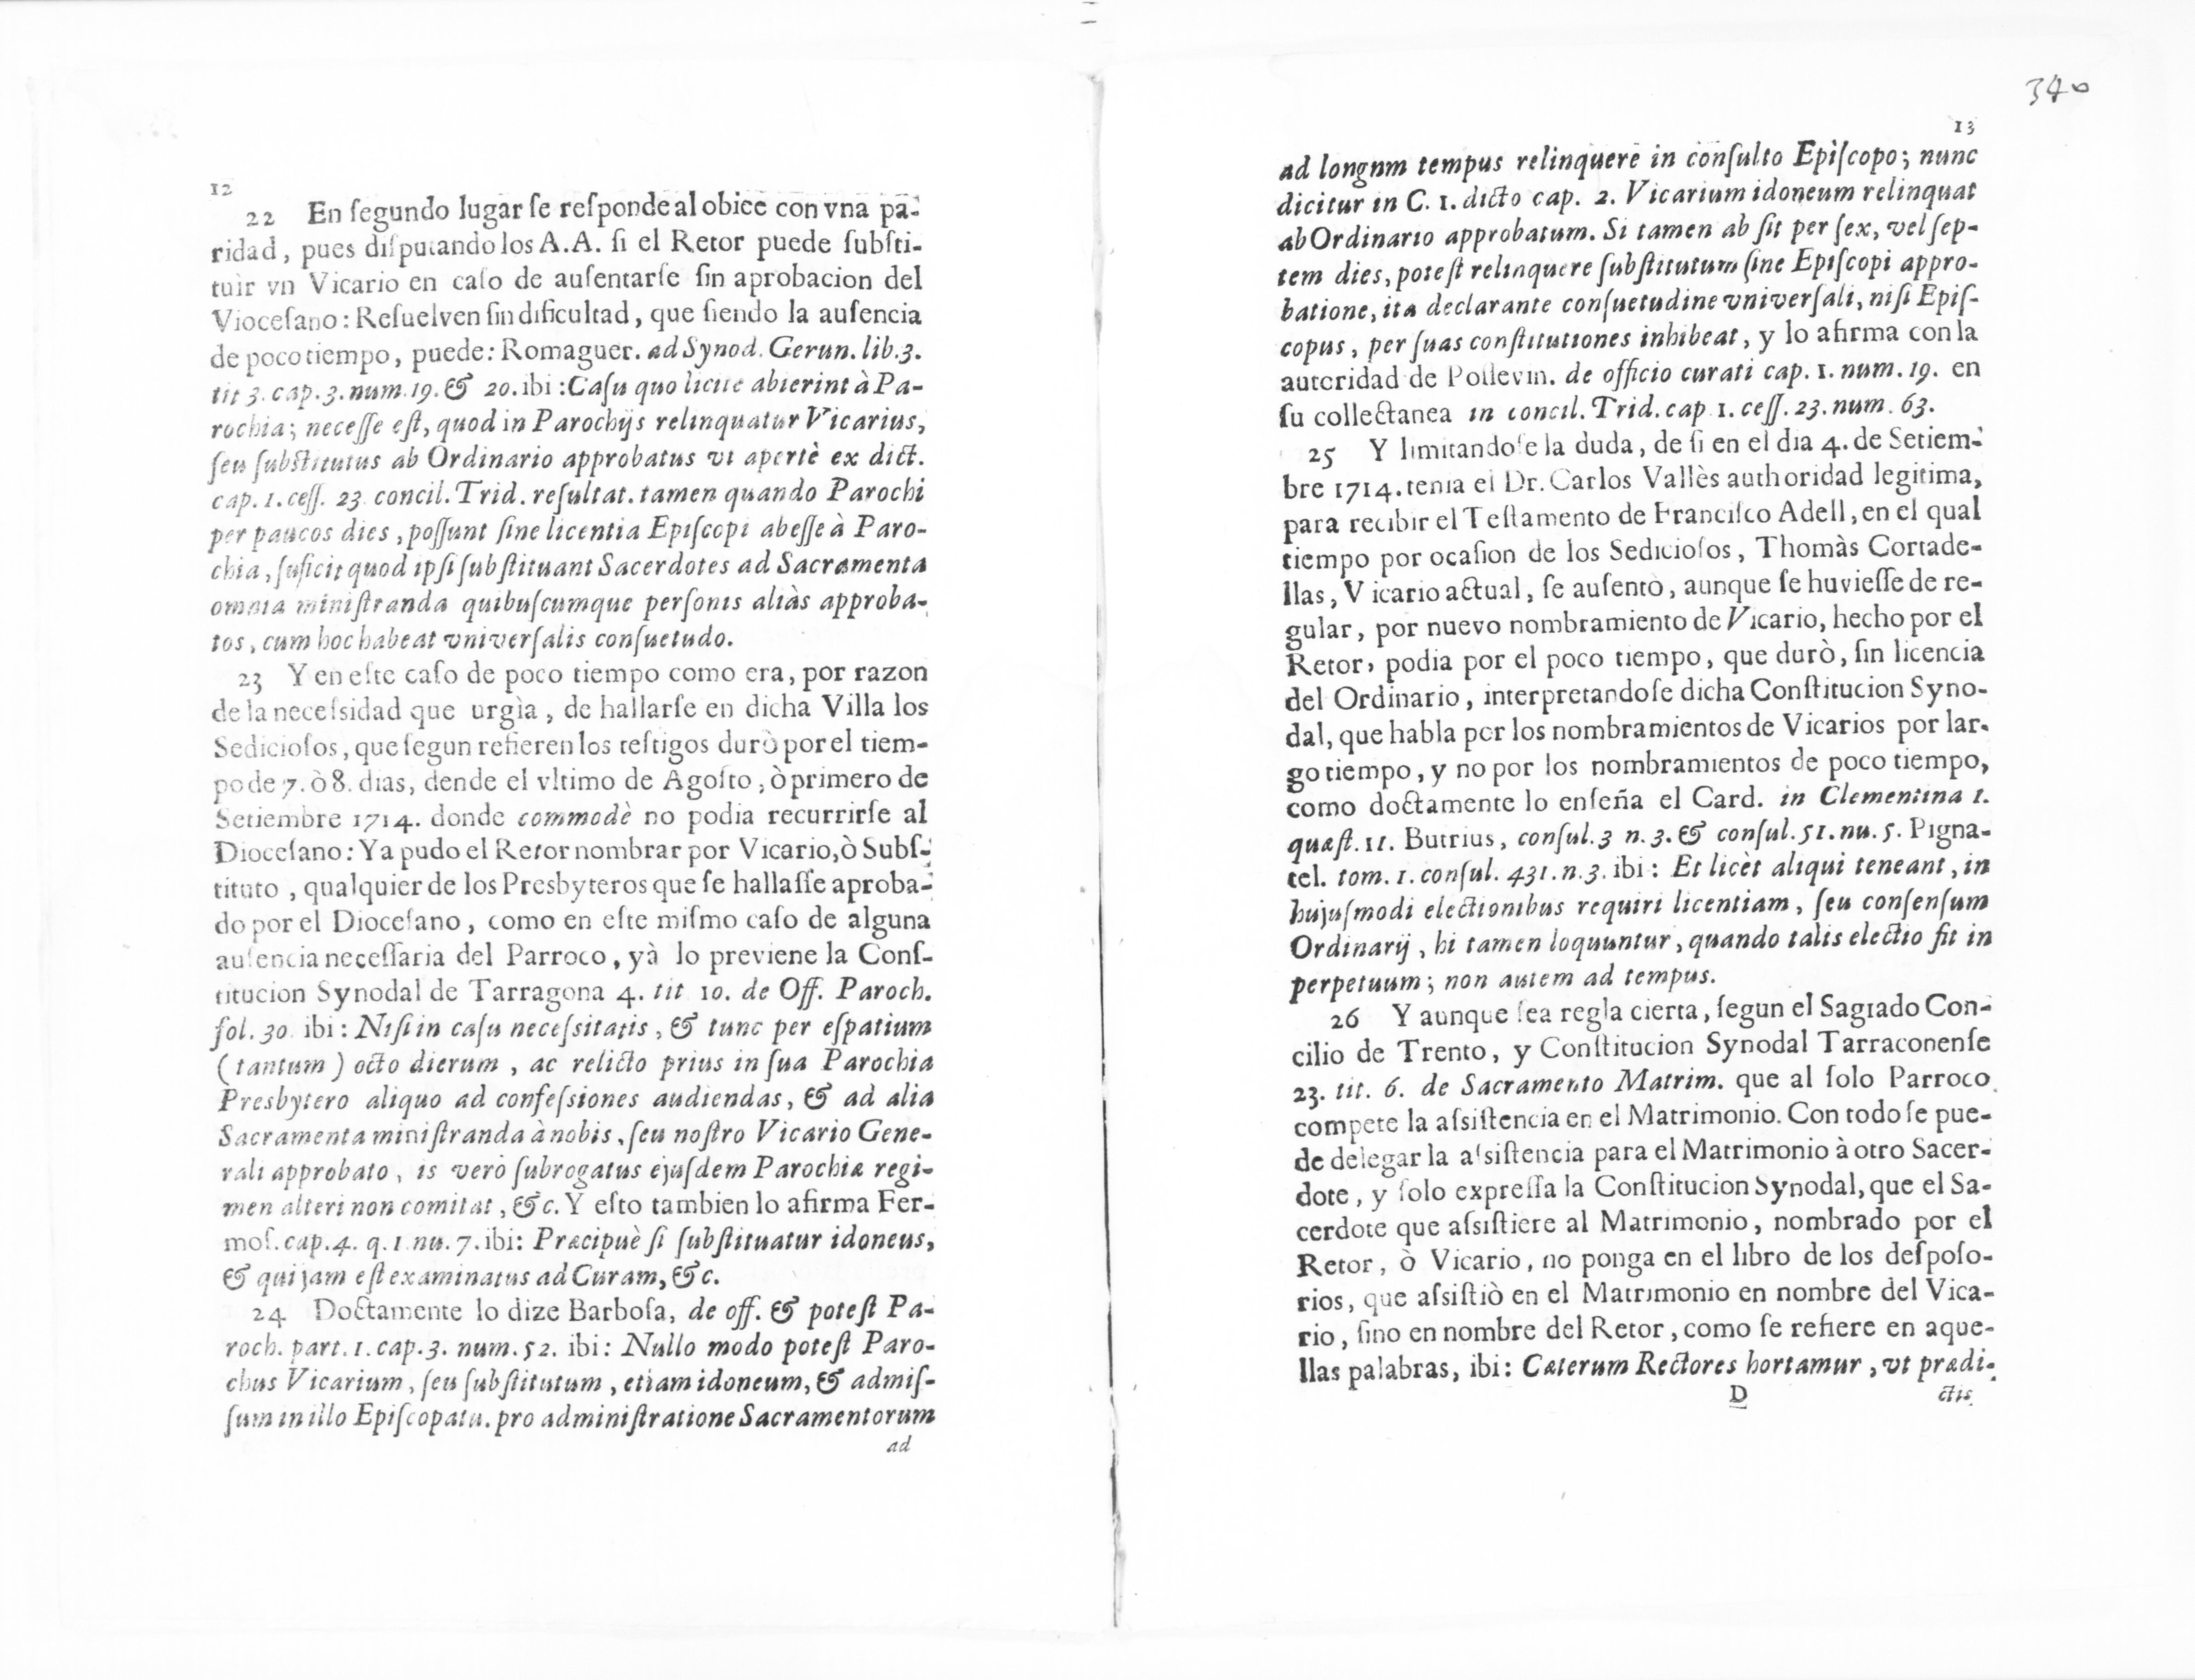 12
22 En ſegundo lugar ſe reſponde al obice con vna pa-
ridad, pues diſputando los A.A. ſi el Retor puede ſubſti-
tuìr vn Vicario en caſo de auſentarſe ſin aprobacion del
Vioceſano: Reſuelven ſin dificultad, que ſiendo la auſencia
de poco tiempo, puede: Romaguer. ad Synod. Gerun. lib. 3.
tit 3. cap. 3. num. 19. & 20. ibi: Caſu quo licitè abierint à Pa-
rochia; neceſſe eſt, quod in Parochijs relinquatur Vicarius,
ſeu ſubſtitutus ab Ordinario approbatus vt apertè ex dict.
cap. 1. ceſſ. 23. concil. Trid. reſultat. tamen quando Parochi
per paucos dies, poſſunt ſine licentia Epiſcopi abeſſe à Paro-
chia, ſuficit quod ipſi ſubſtituant Sacerdotes ad Sacramenta
omnia miniſtranda quibuſcumque perſonis aliàs approba-
tos, cum hoc habeat vniverſalis conſuetudo.
23 Y en eſte caſo de poco tiempo como era, por razon
de la neceſsidad que urgìa, de hallarſe en dicha Villa los
Sedicioſos, que ſegun refieren los teſtigos durò por el tiem-
po de 7. ò 8. dias, dende el vltimo de Agoſto, ò primero de
Setiembre 1714. donde commodè no podia recurrirſe al
Dioceſano: Ya pudo el Retor nombrar por Vicario, ò Subſ-
tituto, qualquier de los Presbyteros que ſe hallaſſe aproba-
do por el Dioceſano, como en eſte miſmo caſo de alguna
auſencia neceſſaria del Parroco, yà lo previene la Conſ-
titucion Synodal de Tarragona 4. tit 10. de Off. Paroch.
fol. 30. ibi: Niſi in caſu neceſsitatis, & tunc per eſpatium
(tantum) octo dierum, ac relicto prius in ſua Parochia
Presbytero aliquo ad confeſsiones audiendas, & ad alia
Sacramenta miniſtranda à nobis, ſeu noſtro Vicario Gene-
rali approbato, is verò ſubrogatus ejuſdem Parochiæ regi-
men alteri non comitat, &c. Y eſto tambien lo afirma Fer-
moſ. cap. 4. q. 1 nu. 7. ibi: Præcipuè ſi ſubſtituatur idoneus,
& qui jam eſt examinatus ad Curam, &c.
24 Doctamente lo dize Barboſa, de off. & poteſt Pa-
roch. part. 1. cap. 3. num. 52. ibi: Nullo modo poteſt Paro-
chus Vicarium, ſeu ſubſtitutum, etiam idoneum, & admiſ-
ſum in illo Epiſcopatu. pro adminiſtratione Sacramentorum
ad
340
13
ad longnm tempus relinquere in conſulto Epiſcopo; nunc
dicitur in C. 1. dicto cap. 2. Vicarium idoneum relinquat
ab Ordinario approbatum. Si tamen ab ſit per ſex, vel ſep-
tem dies, poteſt relinquere ſubſtitutum ſine Epiſcopi appro-
batione, ita declarante conſuetudine vniverſali, niſi Epiſ-
copus, per ſuas conſtitutiones inhibeat, y lo afirma con la
autoridad de Poſſevin. de officio curati cap. 1. num. 19. en
ſu collectanea in concil. Trid. cap 1. ceſſ. 23. num. 63.
25 Y limitandoſe la duda, de ſi en el dia 4. de Setiem-
bre 1714. tenia el Dr. Carlos Vallès authoridad legitima,
para recibir el Teſtamento de Franciſco Adell, en el qual
tiempo por ocaſion de los Sedicioſos, Thomàs Cortade-
llas, Vicario actual, ſe auſentò, aunque ſe huvieſſe de re-
gular, por nuevo nombramiento de Vicario, hecho por el
Retor, podia por el poco tiempo, que durò, ſin licencia
del Ordinario, interpretandoſe dicha Conſtitucion Syno-
dal, que habla por los nombramientos de Vicarios por lar-
go tiempo, y no por los nombramientos de poco tiempo,
como doctamente lo enſeña el Card. in Clementina 1.
quæſt. 11. Butrius, conſul. 3 n. 3. & conſul. 51. nu. 5. Pigna-
tel. tom. 1. conſul. 431. n. 3. ibi: Et licèt aliqui teneant, in
hujuſmodi electionibus requiri licentiam, ſeu conſenſum
Ordinarij, hi tamen loquuntur, quando talis electio fit in
perpetuum; non autem ad tempus.
26 Y aunque ſea regla cierta, ſegun el Sagrado Con-
cilio de Trento, y Conſtitucion Synodal Tarraconenſe
23. tit. 6. de Sacramento Matrim. que al ſolo Parroco
compete la aſsiſtencia en el Matrimonio. Con todo ſe pue-
de delegar la aſsiſtencia para el Matrimonio à otro Sacer-
dote, y ſolo expreſſa la Conſtitucion Synodal, que el Sa-
cerdote que aſsiſtiere al Matrimonio, nombrado por el
Retor, ò Vicario, no ponga en el libro de los deſpoſo-
rios, que aſsiſtiò en el Matrimonio en nombre del Vica-
rio, ſino en nombre del Retor, como ſe refiere en aque-
llas palabras, ibi: Cæterum Rectores hortamur, vt prædi-
D ctis